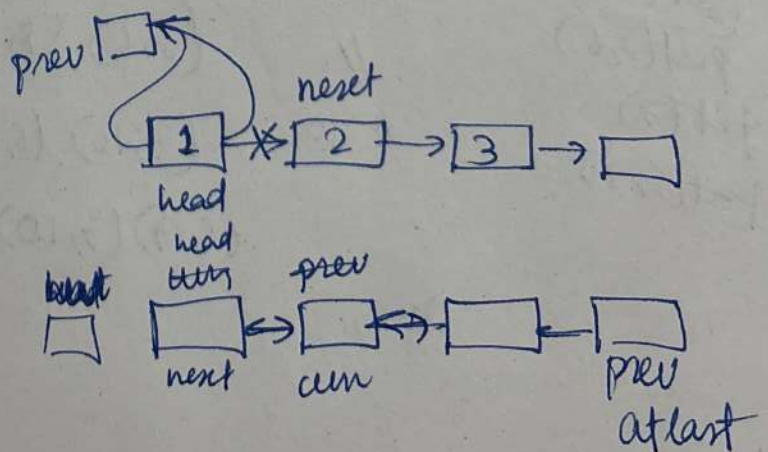 prev
next
1 2 3
head
head
curr prev
next curr prev
at last